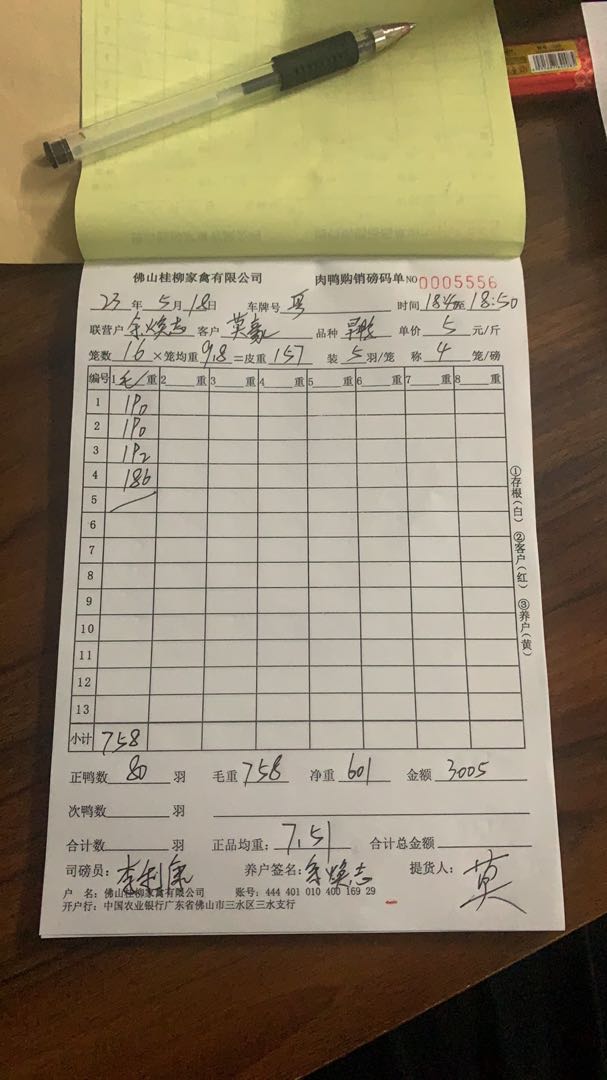 佛山桂柳家禽有限公司 肉鸭购销磅码单 NO 0005556
23年5月18日 车牌号 粤 时间 18:4 至 18:50
联营户 余焕志 客户 莫豪 品种 单价 5 元/斤
笼数 16 ×笼均重 9.8 =皮重 157 装 5 羽/笼 称 4 笼/磅
编号 1 毛 重 2 重 3 重 4 重 5 重 6 重 7 重 8 重
1 190
2 190
3 192
4 186
5
6
7
8
9
10
11
12
13
小计 758
正鸭数 80 羽 毛重 758 净重 601 金额 3005
次鸭数 羽
合计数 羽 正品均重: 7.51 合计总金额
司磅员: 养户签名: 余焕志 提货人: 莫
户 名: 佛山桂柳家禽有限公司 账号: 444 401 010 400 169 29
开户行: 中国农业银行广东省佛山市三水区三水支行
①存根(白) ②客户(红) ③养户(黄)